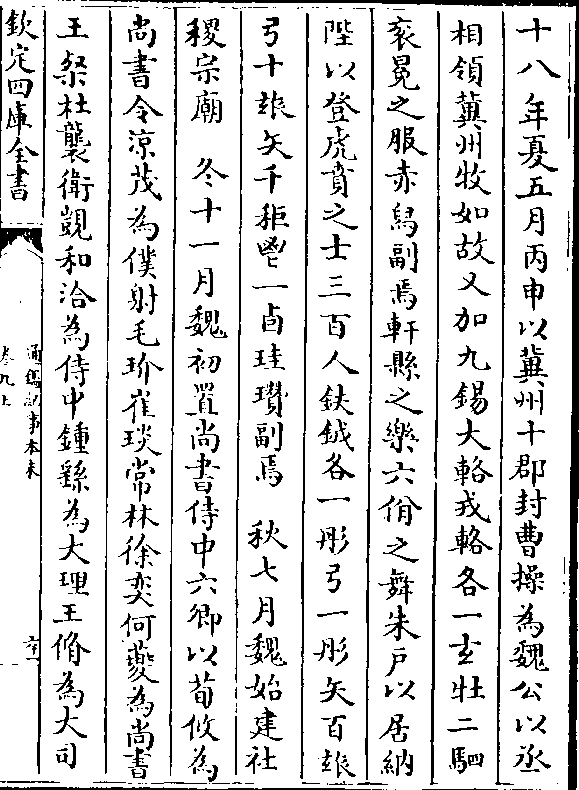 十八年夏五月丙申以冀州十郡封曹操為魏公以丞
相領冀州牧如故又加九錫大輅戎輅各一玄牡二駟
袞冕之服赤舄副焉軒縣之樂六佾之舞朱戶以居納
陛以登虎賁之士三百人鈇鉞各一彤弓一彤矢百玈
弓十玈矢千秬鬯一卣珪瓚副焉　秋七月魏始建社
稷宗廟　冬十一月魏初置尚書侍中六卿以荀攸為
尚書令涼茂為僕射毛玠崔琰常林徐奕何夔為尚書
王粲杜襲衛覬和洽為侍中鍾繇為大理王脩為大司
欽定四庫全書
通鑑紀事本末
卷九上